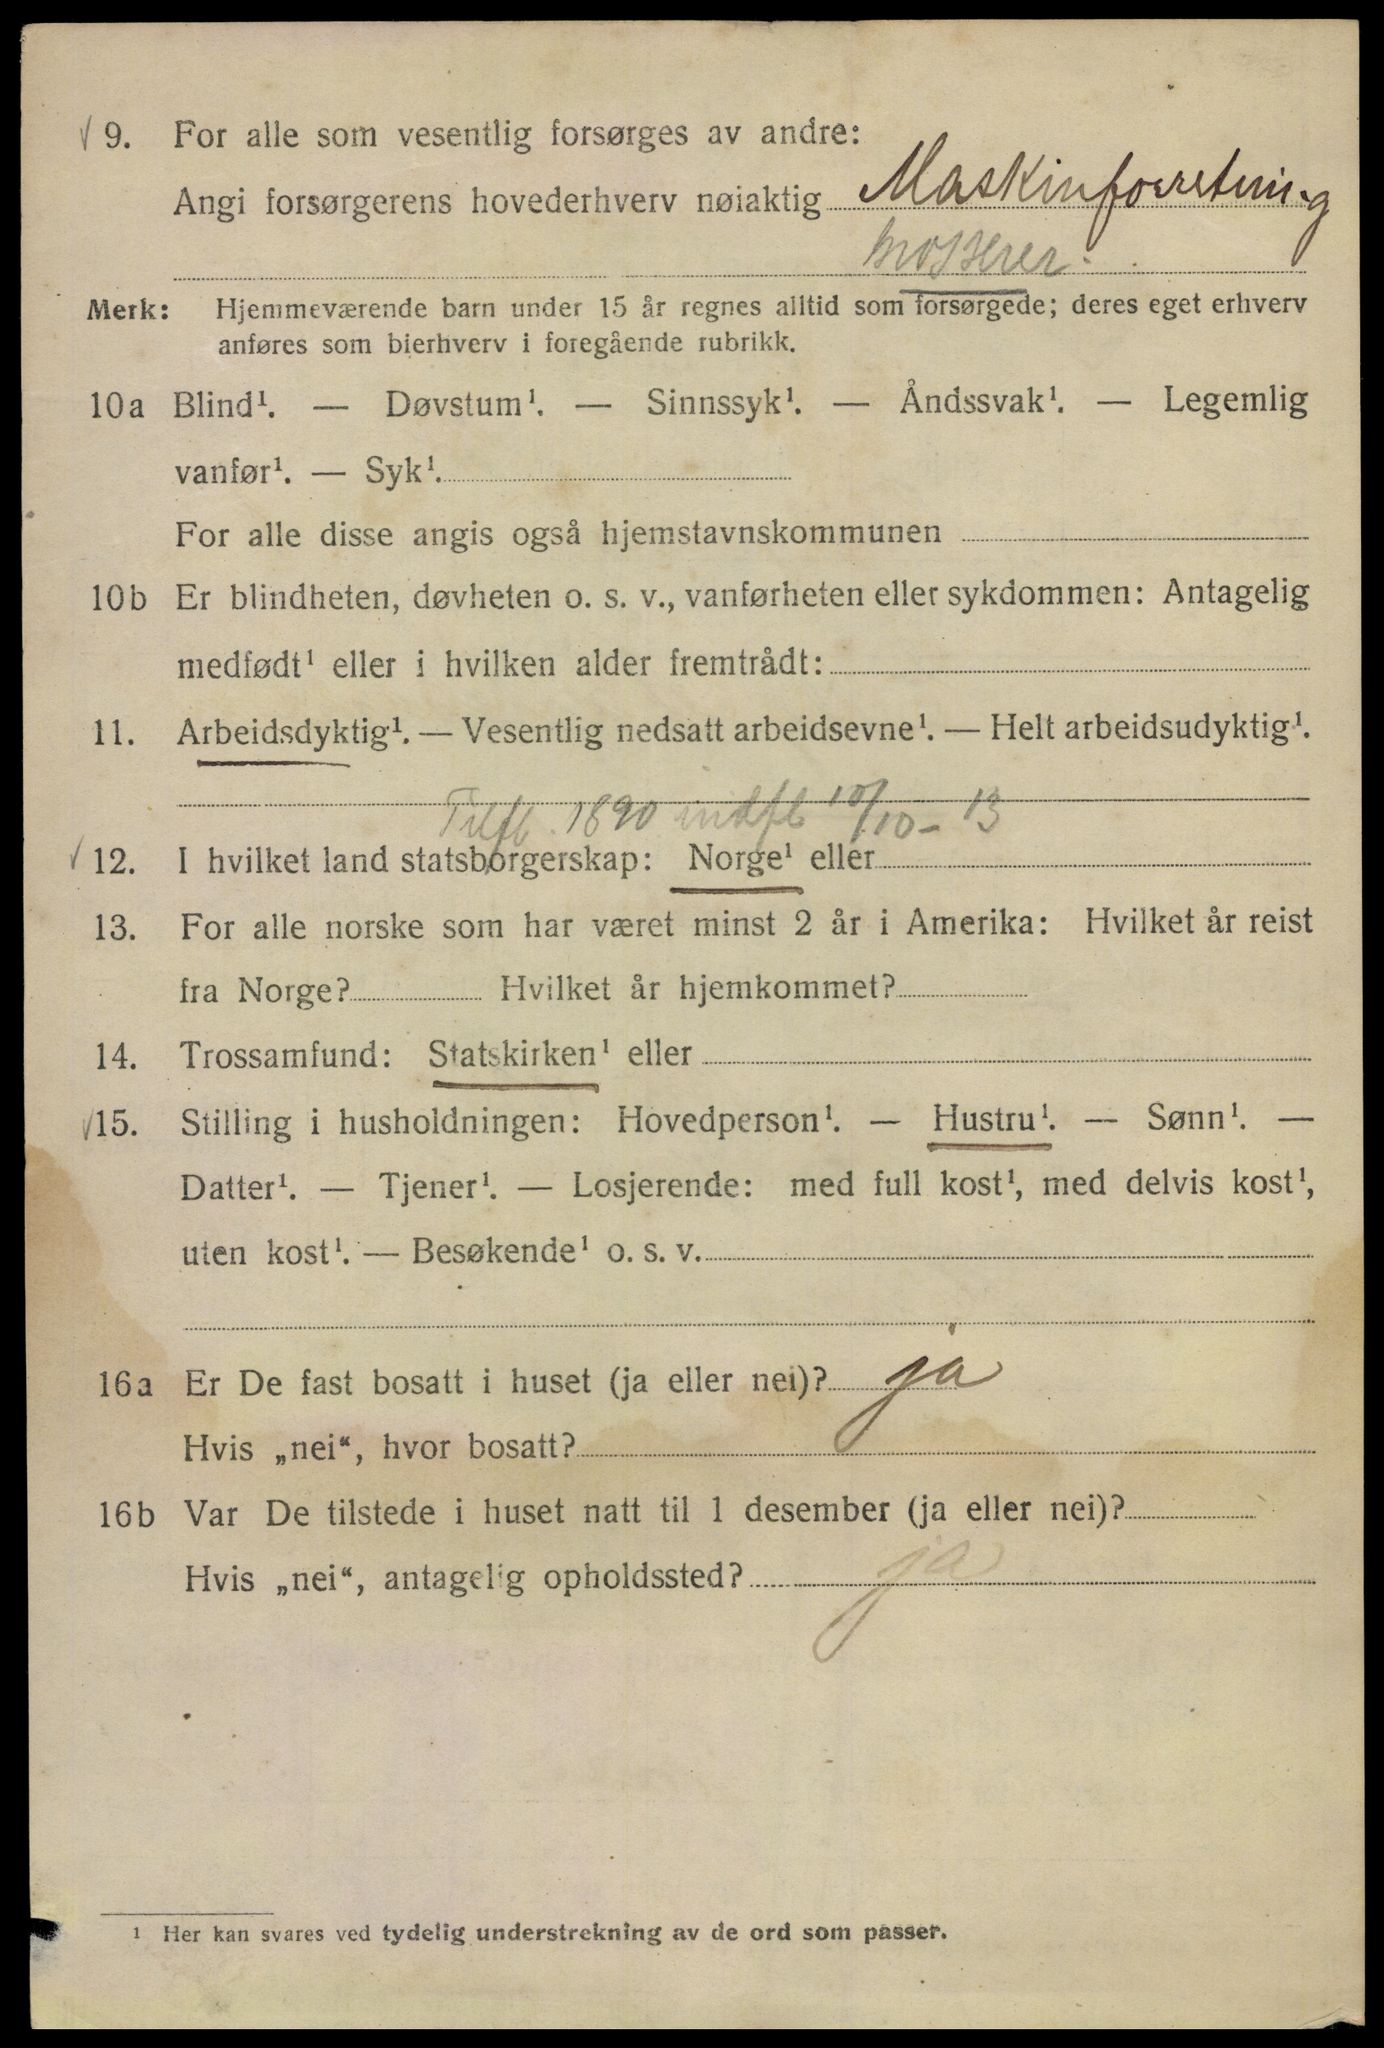 9. For alle som vesentlig forsørges av andre:
Angi forsørgerens hovederhverv nøiaktig Maskinforretning
Grosserer.
Merk: Hjemmeværende barn under 15 år regnes alltid som forsørgede; deres eget erhverv
anføres som bierhverv i foregående rubrikk.
10a Blind¹. — Døvstum¹. — Sinnssyk¹. — Åndssvak¹. — Legemlig
vanfør¹. — Syk¹.
For alle disse angis også hjemstavnskommunen
10b Er blindheten, døvheten o. s. v., vanførheten eller sykdommen: Antagelig
medfødt¹ eller i hvilken alder fremtrådt:
11. Arbeidsdyktig¹. — Vesentlig nedsatt arbeidsevne¹. — Helt arbeidsudyktig¹.
Tilfl. 1890 indfl 10/10 - 13
12. I hvilket land statsborgerskap: Norge¹ eller
13. For alle norske som har været minst 2 år i Amerika: Hvilket år reist
fra Norge? Hvilket år hjemkommet?
14. Trossamfund: Statskirken¹ eller
15. Stilling i husholdningen: Hovedperson¹. — Hustru¹. — Sønn¹. —
Datter¹. — Tjener¹. — Losjerende: med full kost¹, med delvis kost¹,
uten kost¹. — Besøkende¹ o. s. v.
16a Er De fast bosatt i huset (ja eller nei)? ja
Hvis „nei“, hvor bosatt?
16b Var De tilstede i huset natt til 1 desember (ja eller nei)?
Hvis „nei“, antagelig opholdssted? ja
¹ Her kan svares ved tydelig understrekning av de ord som passer.